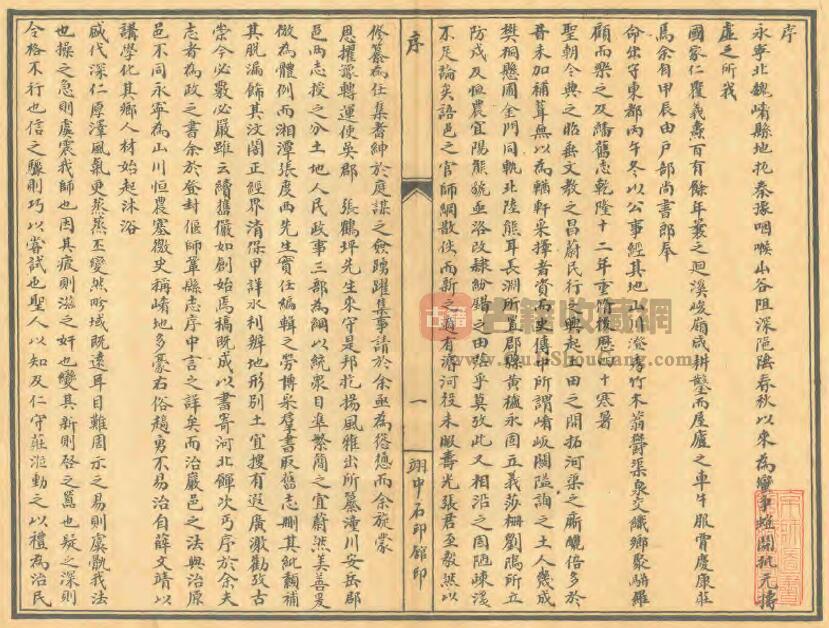 序
永寧北魏崤縣地扼秦豫咽喉山谷阻深阨陋春秋以來為
虛之所我
國家仁覆義燾百有餘年曩之迴溪峻嶺咸耕鑿而屋廬之車牛服賈慶康莊
馬余自甲辰由戶部尚書郎奉
命出守東都丙午冬以公事經其地山川澄秀竹木蓊鬱渠泉交織鄉聚駢羅
顧而樂之及繙舊志乾隆十二年重脩後歷四十寒暑
聖朝令典之昭垂文教之昌蔚民行之興起土田之開拓河渠之廝釃倍多於
昔未加補葺無以為輶軒采擇者資而史傳中所謂崤坂闗隘詢之土人幾成
樊桐懸圃金門同軌北陸熊耳長淵所置郡縣黃櫨永固五義莎柵劉隝所立
防戍及恒農宜陽熊貌亟洛改隸紛錯之由
不足論矣語邑之官師網散佚而新之適有濬河役未暇壽光張君至毅然以
序
一
翊中石印館印
修纂為任集耆紳於庭謀之僉踴躍集事請於余亟為慫慂而余旋蒙
恩擢豫轉運使吳郡 張鶴坪先生來守是邦扢揚風雅出所纂潼川安岳郡
邑兩志授之分土地人民政事三部為綱以統衆目準繁簡之宜蔚然美善爰
倣為體例而湘潭張度西先生實任編輯之勞博采羣書取舊志刪其紕纇補
其脫漏飾其汶闇正經界清保甲詳水利辨地形別土宜搜有遐廣激勸攷古
崇今必覈必嚴雖云續舊儼如創始焉稿既成以書寄河北鐸次丐序於余夫
志者為政之書余於登封偃師鞏縣志序中言之詳矣而治嚴邑之法與治原
邑不同永寧為山川恒農塞徼史稱崤地多豪右俗趫勇不易治自薛文靖以
講學化其鄉人材始起沐浴
盛代深仁厚澤風氣更蒸蒸丕變然畛域既遠耳目難周示之易則虞翫我法
也操之急則虞震我師也因其疲則滋之奸也變其新則啓之囂也疑之深則
令格不行也信之驟則巧以嘗試也聖人以知及仁守莊涖動之以禮為治民